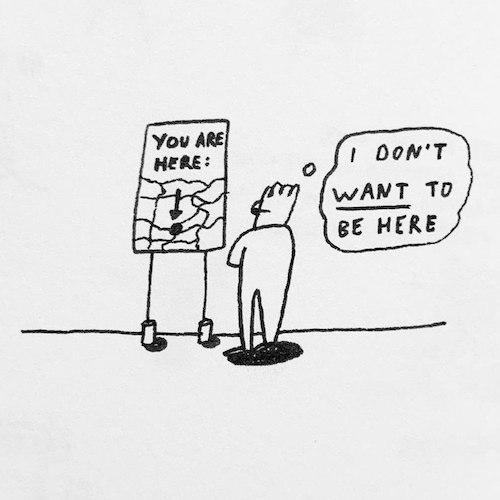 YOU ARE
HERE:
I DON'T
WANT TO
BE HERE